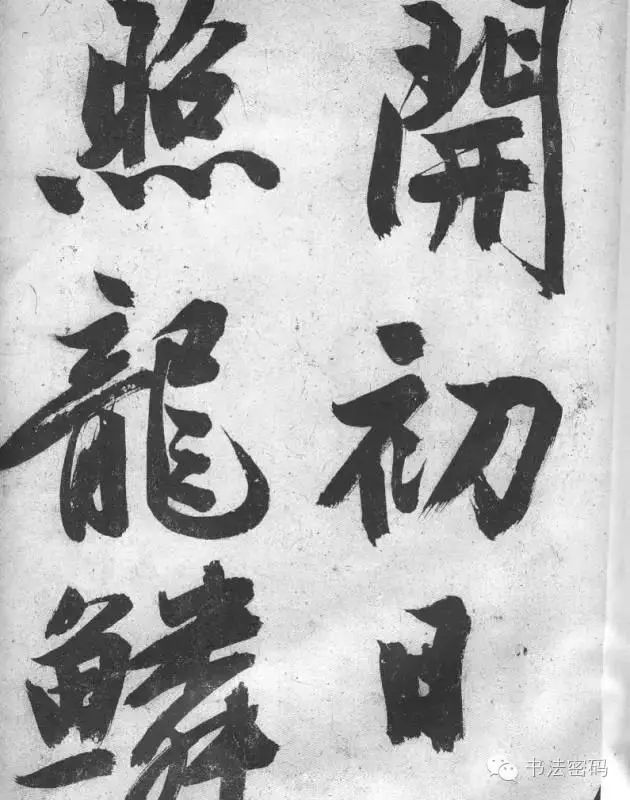 開初日
照龍鱗
书法密码